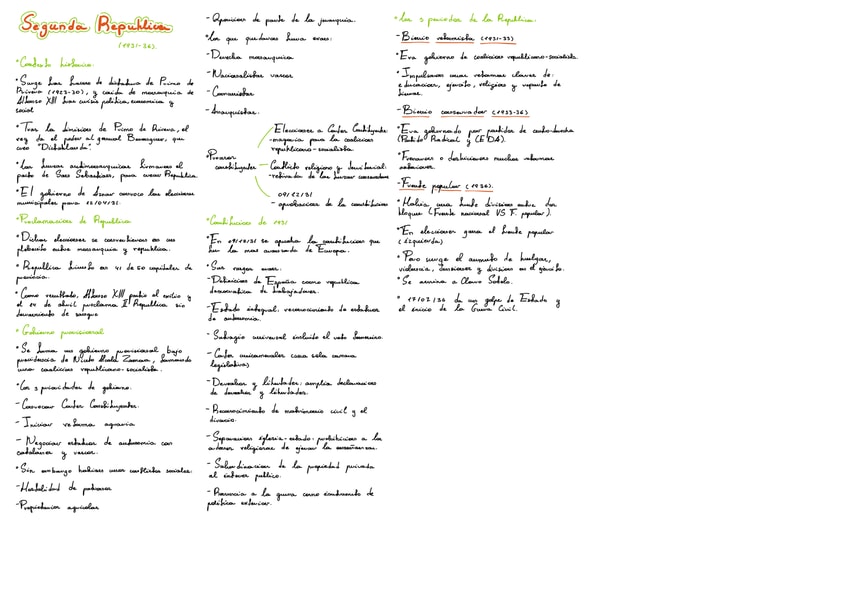 Segunda República
(1931-36).
• Contexto histórico:
• Surge tras dictadura de Primo de
Rivera (1923-30), y caída de monarquía de
Alfonso XIII tras crisis política, económica y
social
• Tras la dimisión de Primo de Rivera, el
rey da el poder al general Berenguer, que
creo "Dictablanda".
• Las fuerzas antimonárquicas firmaron el
pacto de San Sebastián, para crear República.
• El gobierno de Aznar convoca las elecciones
municipales para 12/04/31.
• Proclamación de República
• Dichas elecciones se convirtieron en un
plebiscito entre monarquía y república.
• República triunfo en 41 de 50 capitales de
provincia.
• Como resultado, Alfonso XIII partió al exilio y
el 14 de abril proclama II República sin
derramiento de sangre
• Gobierno provisional
• Se forma un gobierno provisional bajo
presidencia de Niceto Alcalá Zamora, formando
una coalición republicano-socialista.
• Las 3 prioridades de gobierno:
- Convocar Cortes Constituyentes.
- Iniciar reforma agraria
- Negociar estatutos de autonomía con
catalanes y vascos.
• Sin embargo habían unos conflictos sociales:
- Hostilidad de patronos
- Propietarios agrícolas
- Oposición de parte de la jerarquía.
• Los que quedaron fuera eran:
- Derecha monárquica
- Nacionalistas vascos
- Comunistas
- Anarquistas.
• Proceso
constituyente
Elecciones a Cortes Constituyentes
- mayoría para la coalición
republicano-socialista
Conflicto religioso y territorial:
- retirada de las fuerzas conservadoras
09/12/31
- aprobación de la constitución
Constitución de 1931
• En 09/12/31 se aprueba la constitución que
fue la más avanzada de Europa.
• Sus rasgos eran:
- Definición de España como república
democrática de trabajadores.
- Estado integral: reconocimiento de estatutos
de autonomía.
- Sufragio universal incluido el voto femenino.
- Cortes unicamerales (una sola cámara
legislativa)
- Derechos y libertades: amplia declaración
de derechos y libertades.
- Reconocimiento de matrimonio civil y el
divorcio.
- Separación iglesia-estado: prohibición a las
órdenes religiosas de ejercer la enseñanza.
- Subordinación de la propiedad privada
al interés público.
- Renuncia a la guerra como instrumento de
política exterior.
• Los 3 periodos de la República:
- Bienio reformista (1931-33)
• Era gobierno de coalición republicano-socialista.
• Impulsaron unas reformas claves de:
educación, ejército, religiosa y reparto de
tierras.
- Bienio conservador (1933-36)
• Era gobernado por partidos de centro-derecha
(Partido Radical y CEDA).
• Frenaron o deshicieron muchas reformas
anteriores.
- Frente popular (1936).
• Había una fuerte división entre dos
bloques (Frente nacional VS F. popular).
• En elecciones gana el frente popular
(izquierda)
• Pero surge el aumento de huelgas,
violencia, tensiones y división en el ejército.
• Se asesina a Calvo Sotelo.
• 17/07/36 da un golpe de Estado y
el inicio de la Guerra Civil.